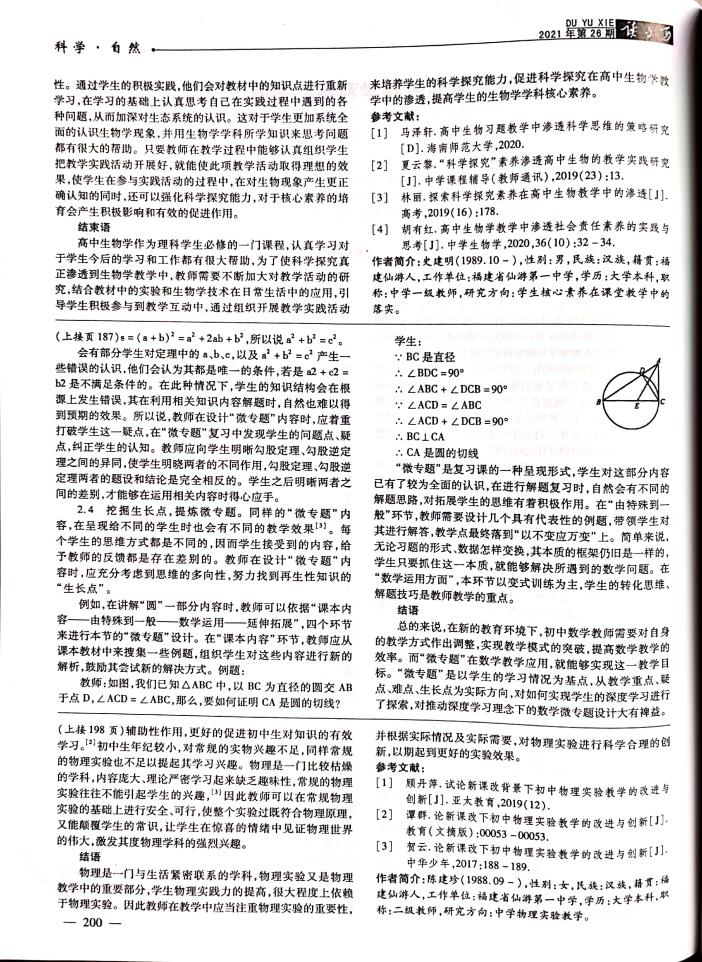 科学·自然
DU YU XIE
2021 年第 26 期
读与写
性。通过学生的积极实践,他们会对教材中的知识点进行重新
学习,在学习的基础上认真思考自己在实践过程中遇到的各
种问题,从而加深对生态系统的认识。这对于学生更加系统全
面的认识生物学现象,并用生物学学科所学知识来思考问题
都有很大的帮助。只要教师在教学过程中能够认真组织学生
把教学实践活动开展好,就能使此项教学活动取得理想的效
果,使学生在参与实践活动的过程中,在对生物现象产生更正
确认知的同时,还可以强化科学探究能力,对于核心素养的培
育会产生积极影响和有效的促进作用。
结束语
高中生物学作为理科学生必修的一门课程,认真学习对
于学生今后的学习和工作都有很大帮助,为了使科学探究真
正渗透到生物学教学中,教师需要不断加大对教学活动的研
究,结合教材中的实验和生物学技术在日常生活中的应用,引
导学生积极参与到教学互动中,通过组织开展教学实践活动
来培养学生的科学探究能力,促进科学探究在高中生物学教
学中的渗透,提高学生的生物学学科核心素养。
参考文献:
[1] 马泽轩.高中生物习题教学中渗透科学思维的策略研究
[D].海南师范大学,2020.
[2] 夏云黎.“科学探究”素养渗透高中生物的教学实践研究
[J].中学课程辅导(教师通讯),2019(23):13.
[3] 林丽.探索科学探究素养在高中生物教学中的渗透[J].
高考,2019(16):178.
[4] 胡有红.高中生物学教学中渗透社会责任素养的实践与
思考[J].中学生物学,2020,36(10):32-34.
作者简介:史建明(1989.10-),性别:男,民族:汉族,籍贯:福
建仙游人,工作单位:福建省仙游第一中学,学历:大学本科,职
称:中学一级教师,研究方向:学生核心素养在课堂教学中的
落实。
(上接页 187)s=(a+b)²=a²+2ab+b²,所以说 a²+b²=c²。
会有部分学生对定理中的 a、b、c,以及 a²+b²=c² 产生一
些错误的认识,他们会认为其都是唯一的条件,若是 a2+c2=
b2 是不满足条件的。在此种情况下,学生的知识结构会在根
源上发生错误,其在利用相关知识内容解题时,自然也难以得
到预期的效果。所以说,教师在设计“微专题”内容时,应着重
打破学生这一疑点,在“微专题”复习中发现学生的问题点、疑
点,纠正学生的认知。教师应向学生明晰勾股定理、勾股逆定
理之间的异同,使学生明晓两者的不同作用,勾股定理、勾股逆
定理两者的题设和结论是完全相反的。学生之后明晰两者之
间的差别,才能够在运用相关内容时得心应手。
2.4 挖掘生长点,提炼微专题。同样的“微专题”内
容,在呈现给不同的学生时也会有不同的教学效果[3]。每
个学生的思维方式都是不同的,因而学生接受到的内容,给
予教师的反馈都是存在差别的。教师在设计“微专题”内
容时,应充分考虑到思维的多向性,努力找到再生性知识的
“生长点”。
例如,在讲解“圆”一部分内容时,教师可以依据“课本内
容——由特殊到一般——数学运用——延伸拓展”,四个环节
来进行本节的“微专题”设计。在“课本内容”环节,教师应从
课本教材中来搜集一些例题,组织学生对这些内容进行新的
解析,鼓励其尝试新的解决方式。例题:
教师:如图,我们已知△ABC 中,以 BC 为直径的圆交 AB
于点 D,∠ACD=∠ABC,那么,要如何证明 CA 是圆的切线?
学生:
∵ BC 是直径
∴ ∠BDC=90°
∴ ∠ABC+∠DCB=90°
∵ ∠ACD=∠ABC
∴ ∠ACD+∠DCB=90°
∴ BC⊥CA
∴ CA 是圆的切线
A
D
B
E
C
“微专题”是复习课的一种呈现形式,学生对这部分内容
已有了较为全面的认识,在进行解题复习时,自然会有不同的
解题思路,对拓展学生的思维有着积极作用。在“由特殊到一
般”环节,教师需要设计几个具有代表性的例题,带领学生对
其进行解答,教学点最终落到“以不变应万变”上。简单来说,
无论习题的形式、数据怎样变换,其本质的框架仍旧是一样的,
学生只要抓住这一本质,就能够解决所遇到的数学问题。在
“数学运用方面”,本环节以变式训练为主,学生的转化思维、
解题技巧是教师教学的重点。
结语
总的来说,在新的教育环境下,初中数学教师需要对自身
的教学方式作出调整,实现教学模式的突破,提高数学教学的
效率。而“微专题”在数学教学应用,就能够实现这一教学目
标。“微专题”是以学生的学习情况为基点,从教学重点、疑
点、难点、生长点为实际方向,对如何实现学生的深度学习进行
了探索,对推动深度学习理念下的数学微专题设计大有裨益。
(上接 198 页)辅助性作用,更好的促进初中生对知识的有效
学习。[2]初中生年纪较小,对常规的实物兴趣不足,同样常规
的物理实验也不足以提起其学习兴趣。物理是一门比较枯燥
的学科,内容庞大、理论严密学习起来缺乏趣味性,常规的物理
实验往往不能引起学生的兴趣,[3]因此教师可以在常规物理
实验的基础上进行安全、可行,使整个实验过既符合物理原理,
又能颠覆学生的常识,让学生在惊喜的情绪中见证物理世界
的伟大,激发其度物理学科的强烈兴趣。
结语
物理是一门与生活紧密联系的学科,物理实验又是物理
教学中的重要部分,学生物理实践力的提高,很大程度上依赖
于物理实验。因此教师在教学中应当注重物理实验的重要性,
并根据实际情况及实际需要,对物理实验进行科学合理的创
新,以期起到更好的实验效果。
参考文献:
[1] 顾丹萍.试论新课改背景下初中物理实验教学的改进与
创新[J].亚太教育,2019(12).
[2] 谭群.论新课改下初中物理实验教学的改进与创新[J].
教育(文摘版):00053-00053.
[3] 贺云.论新课改下初中物理实验教学的改进与创新[J].
中华少年,2017:188-189.
作者简介:陈建珍(1988.09-),性别:女,民族:汉族,籍贯:福
建仙游人,工作单位:福建省仙游第一中学,学历:大学本科,职
称:二级教师,研究方向:中学物理实验教学。
— 200 —